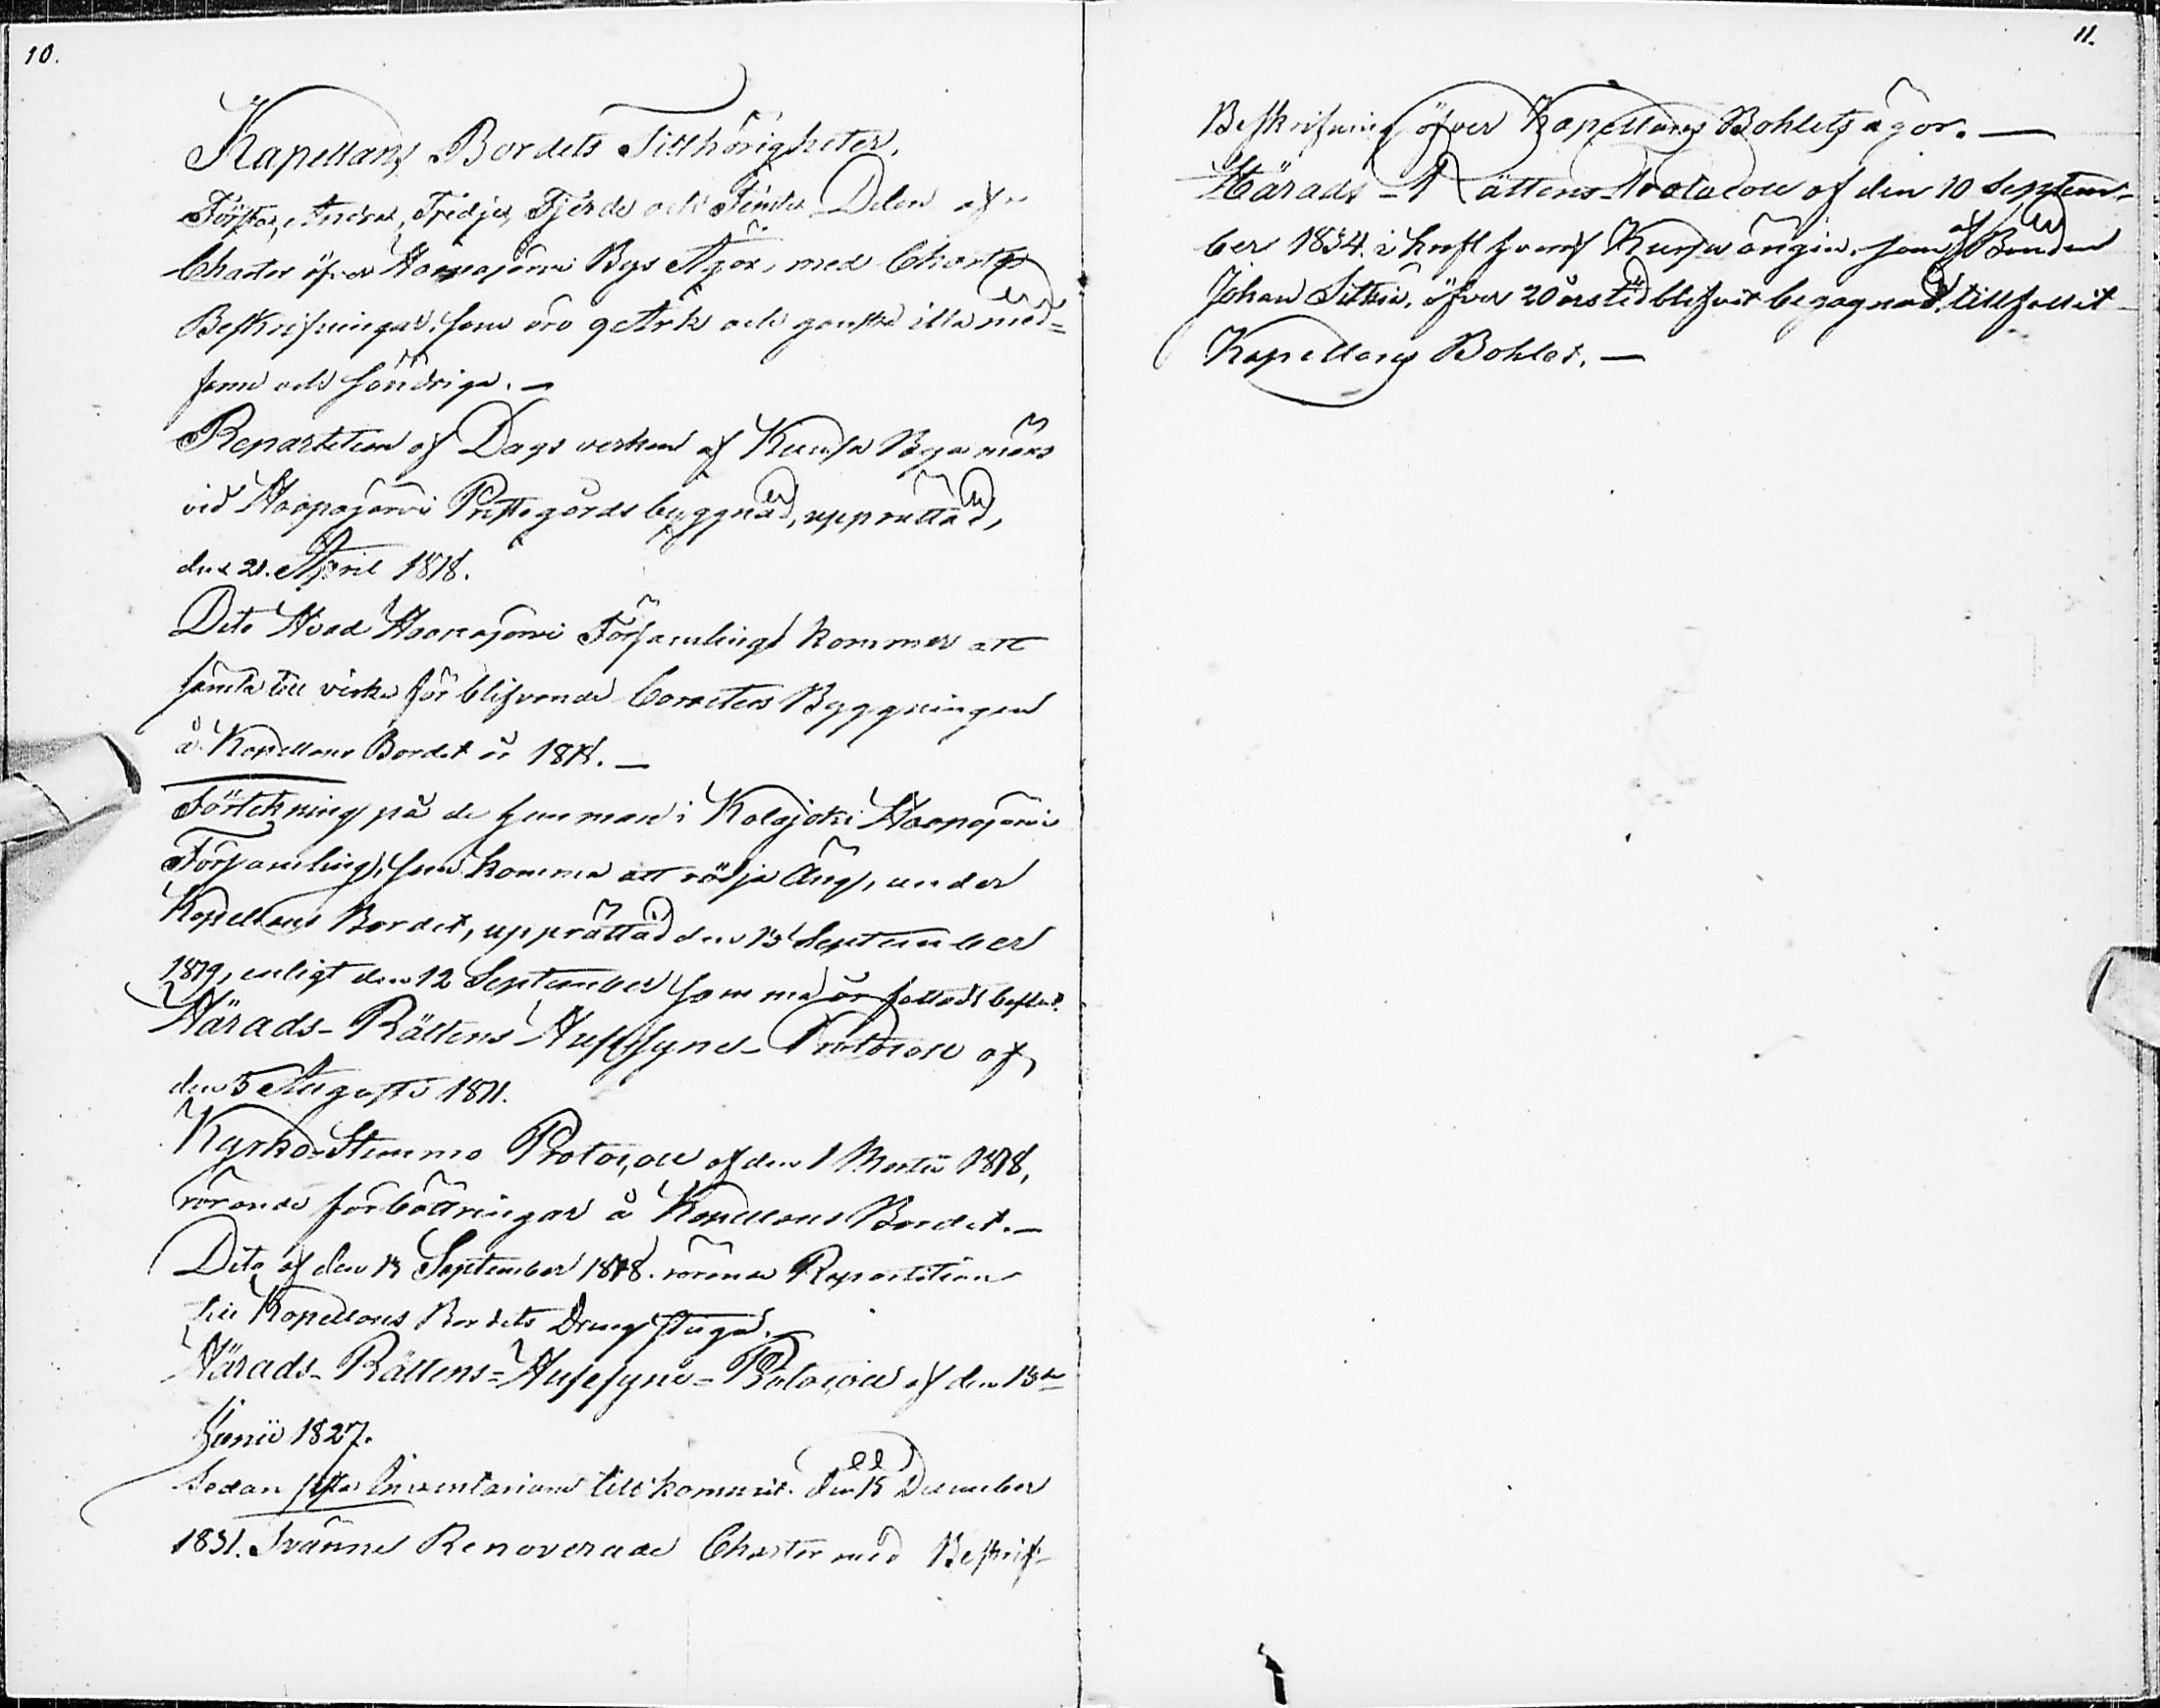 10.
Kapellans Bordets Tillhörigheter.
Första, Andra, Tredje, Fjerde och Femte Delen af
Charter öfver Haapajärvi Bys Ägor, med Charte
Beskrifningar, som äro 9 Ark och ganska illa med=
farne och söndriga. —
Repartition af Dags verken af Kunsa Bya mäns
vid Haapajärvi Prestegårds byggnad, upprättad,
den 21. April 1818.
Dito Hvad Haapajärvi Församlings kommer att
samla till virke för blifvande Caracters Byggningen
å Kapellans Bordet år 1818. —
Förtekning på de hemman i Kalajoki Haapajärvi
Församling, som komma att rödja Äng, under
Kapellans Bordet, upprättad den 13 September
1819, enligt den 12 September samma år fattadt beslut.
Härads-Rättens Husesyns-Protocoll af
den 5 Augusti 1811.
Kyrko-Stemmo Protocoll af den 1 Martii 1818,
rörande förbättringar å Kapellans Bordet. —
Dito af den 13 September 1818. rörande Repartition
till Kapellans Bordets Drengstuga.
Härads-Rättens=Husesyns=Protocoll af den 13de
Junii 1827.
Sedan sista Inventarium tillkommit den 15 December
1831. Tvänne Renoverade Charter med Beskrif-
11.
Beskrifning öfver Kapellans Bohlets ägor. —
Härads-Rättens Protocoll af den 10 Septem-
ber 1834. i kraft hvaraf ängen, som af Bonden
Johan öfver 20 års tid blifvit begagnad, tillfallit
Kapellans Bohlet. —